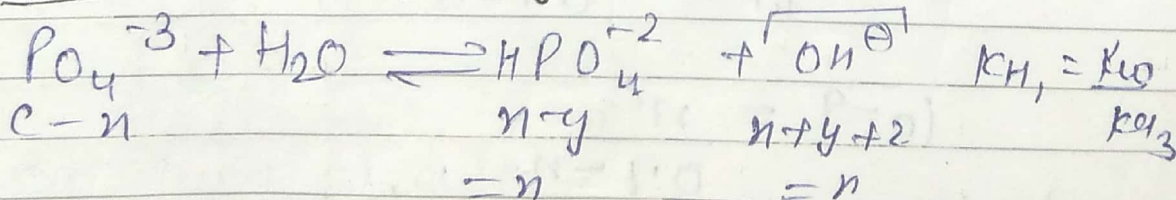 PO₄⁻³ + H₂O ⇌ HPO₄⁻² + OH⊖ KH₁ = Kw/Ka₃
C-x x-y x+y+z
=x =x